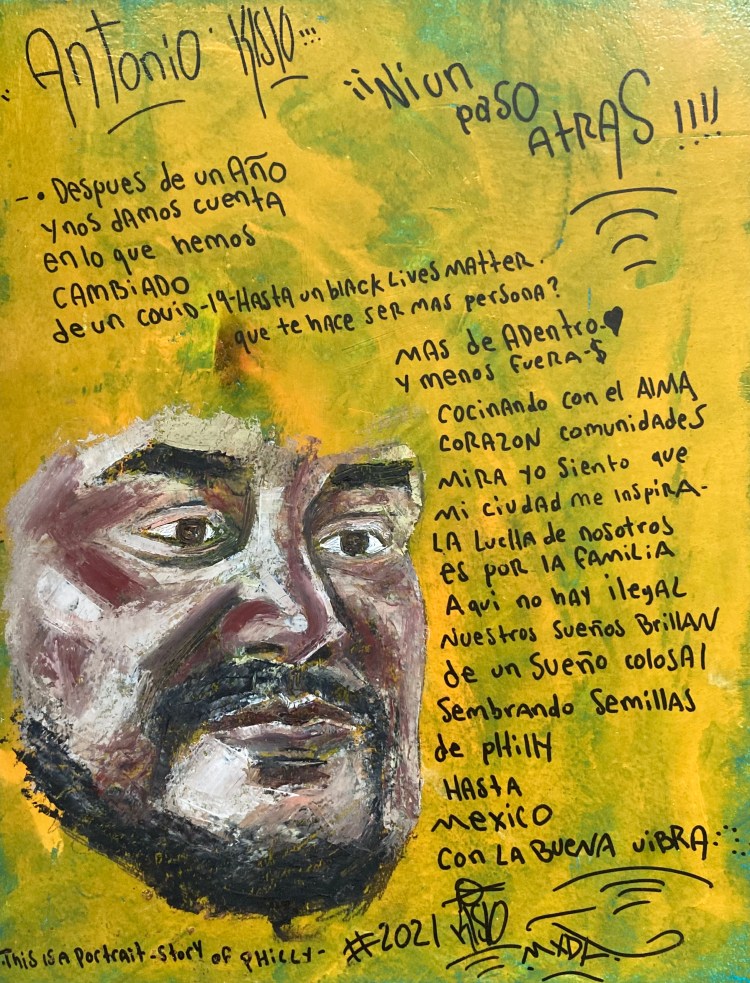 Antonio
¡¡Ni un
paso
AtRAS !!!!
-. Despues de un AÑo
y nos dAmos cuenta
en lo que hemos
CAMBiADO
de un COViD-19-HAStA un blAck Lives MAtter.
que te hace SER MAS PERSONA?
MAS de ADentro-♥
y menos FueRA-$
COCINANDO CON el AlMA
CORAZON COMUNiDADes
MiRA Yo Siento que
Mi CiUDAD me INSpiRA-
LA LucllA de nosotros
es por lA FAMiLiA
Aqui no hAy ilegAL
Nuestros Sueños BRillAN
de un Sueño colosAl
SembRANDo SemillAS
de pHillY
HAStA
MEXiCO
CON LA BUENA ViBRA
.This is A portRAit-StoRY of pHiLLY-
#2021